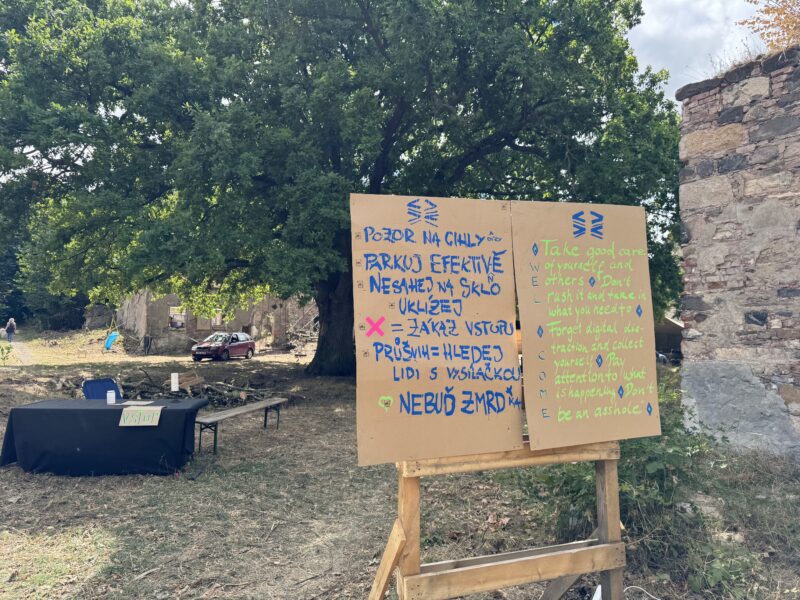 POZOR NA CIHLY
PARKUJ EFEKTIVĚ
NESAHEJ NA SKLO
UKLÍZEJ
= ZÁKAZ VSTUPU
PRŮŠVIH = HLEDEJ
LIDI S VYSÍLAČKOU
NEBUĎ ZMRD
WELCOME
Take good care
of yourself and
others Don't
rush it and take in
what you need to
Forget digital dis-
traction and collect
yourself Pay
attention to what
is happening Don't
be an asshole